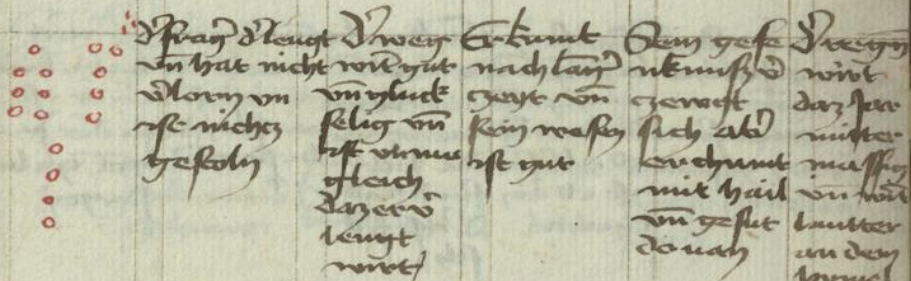 d' frag' d' leugt
vn hat nicht
v'lorn vn
ist nichcz
gestoln
D' weg
wirt gut
vnd gluck
selig vnd
ist
gleich
daz er v'
leugt
wirt
Er kumt
nach lang'
czeyt vnd
sein wesen
ist gut
Sein gefe
nknusz
czeprist
sich aber
er chumt
mit hail
vnd gesut
do van
D' regen
wirt
daz Jar
mitter
massig
vn wirt
lautter
an dem